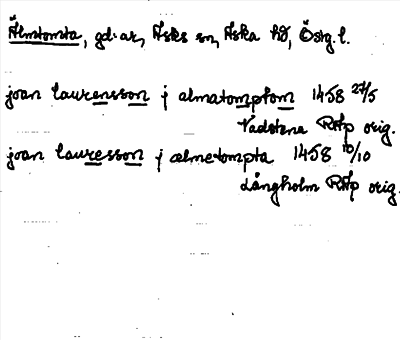 Älmtomta, gd:ar, Asks sn, Aska hd, Östg. l.
joan laurensson j almatomptom 1458 27/5
Vadstena RAp orig.
joan lauresson j ælmetompta 1458 10/10
Långholm RAp orig.